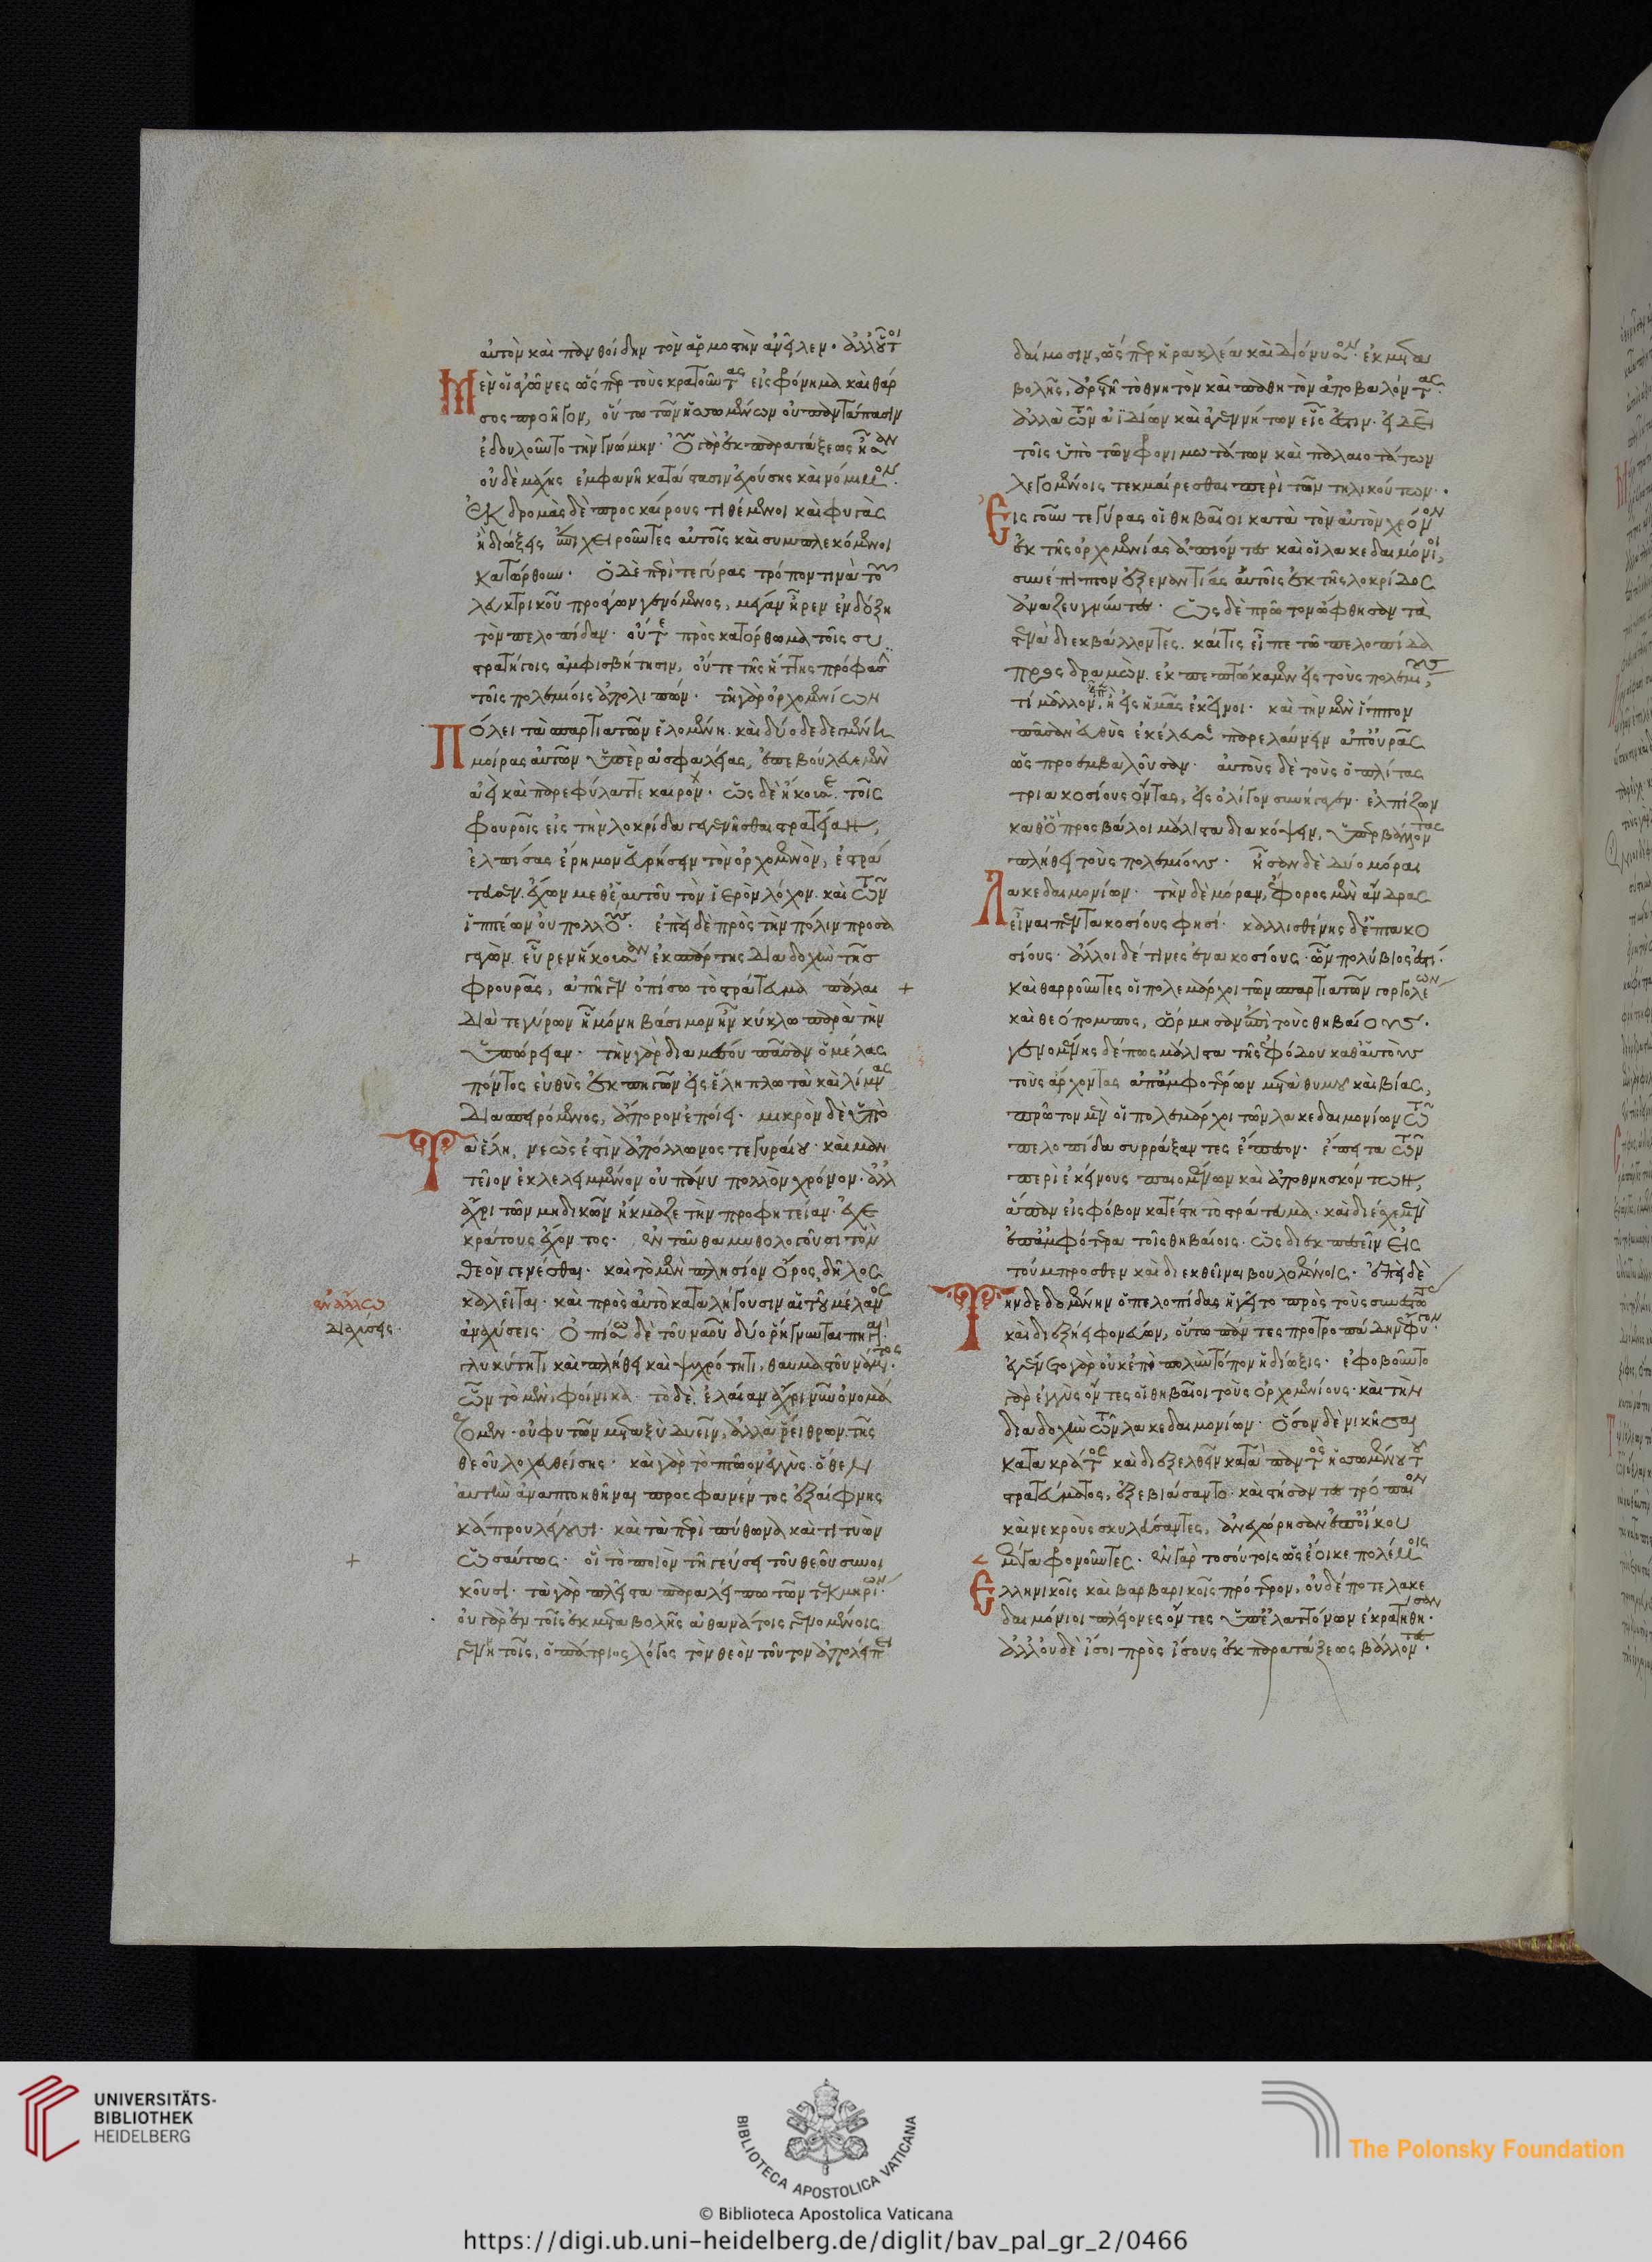 αὐτὸν καὶ πανθοίδην τὸν ἁρμοστὴν ἀνεῖλεν. ἀλλ οὗτοι
μὲν οἱ ἀγῶνες ὥσπερ τοὺς κρατοῦντας εἰς φρόνημα καὶ θάρ
σος προῆγον, οὕτω τῶν ἡσσωμένων οὐ παντάπασιν
ἐδουλοῦντο τὴν γνώμην. οὐ γὰρ ἐκ παρατάξεως ἦσαν
οὐδὲ μάχης ἐμφανῆ κατάστασιν ἐχούσης καὶ νόμιμον.
ἐκδρομὰς δὲ προς καίρους τιθέμενοι καὶ φυγὰς
ἢ διώξεις ἐπιχειροῦντες αὐτοῖς καὶ συμπλεκόμενοι
κατώρθουν. ὁ δὲ περὶ τεγύρας τρόπον τινὰ τοῦ
λευκτρικοῦ προάγων γενόμενος, μέγαν ἦρεν ἐν δόξῃ
τὸν πελοπίδαν. οὔτε πρὸς κατόρθωμα τοῖς συ
στρατήγοις ἀμφισβήτησιν, οὔτε τῆς ἥττης πρόφασιν
τοῖς πολεμίοις ἀπολιπών. τῇ γὰρ ὀρχομενίων
πόλει τὰ σπαρτιατῶν ἑλομένῃ. καὶ δύο δεδεγμένῃ
μοίρας αὐτῶν ὑπὲρ ἀσφαλείας, ἐπεβούλευε μὲν
ἀεὶ καὶ παρεφύλαττε καιρόν. ὡς δὲ ἤκουσε τοῖς
φρουροῖς εἰς τὴν λοκρίδα γεγενῆσθαι στρατείαν,
ἐλπίσας ἔρημον εὑρήσειν τὸν ὀρχομενὸν, ἐστρά
τευσεν. ἔχων μεθ ἑαυτοῦ τὸν ἱερὸν λόχον. καὶ τῶν
ἱππέων οὐ πολλούς. ἐπεὶ δὲ πρὸς τὴν πόλιν προσα
γαγὼν. εὗρεν ἥκουσαν ἐκ σπάρτης διαδοχὴν τῆς
φρουρᾶς, ἀπῆγεν ὀπίσω τὸ στράτευμα πάλαι
διὰ τεγύρων ᾗ μόνῃ βάσιμον ἦν κύκλῳ παρὰ τὴν
ὑπώρειαν. τὴν γὰρ διαμέσου πᾶσαν ὁ μέλας
πόντος εὐθὺς ἐκ πηγῶν εἰς ἕλη πλωτὰ καὶ λίμνας
διασπειρόμενος, ἄπορον ἐποίει. μικρὸν δὲ ὑπὸ
τὰ ἕλη, νεὼς ἐστὶν ἀπόλλωνος τεγυραίου. καὶ μαν
τεῖον ἐκλελειμμένον οὐ πάνυ πολλὺν χρόνον. ἀλλ
ἄχρι τῶν μηδικῶν ἤκμαζε τὴν προφητείαν ἐχε
κράτους ἔχοντος. ἐνταῦθα μυθολογοῦσι τὸν
θεὸν γενέσθαι. καὶ τὸ μὲν πλησίον ὄρος, δῆλος
καλεῖται. καὶ πρὸς αὐτὸ καταλήγουσιν αἱ τοῦ μέλανος
ἀναχύσεις. ὀπίσω δὲ τοῦ ναοῦ δύο ῥήγνυνται πηγαὶ.
γλυκύτητι καὶ πλήθει καὶ ψυχρότητι, θαυμαστοῦ νάματος.
ὧν τὸ μὲν, φοίνικα. τὸ δὲ, ἐλαίαν ἄχρι νῦν ὀνομά
ζομεν. οὐ φυτῶν μεταξὺ δυεῖν, ἀλλὰ ῥείθρων τῆς
θεοῦ λοχευθείσης. καὶ γὰρ τὸ πτῶον ἐγγὺς. ὅθεν
αὐτὴν ἀναπτοηθῆναι προφανέντος ἐξαίφνης
κάπρου λέγουσι. καὶ τὰ περὶ πύθωνα καὶ τιτυὸν
ὡσαύτως. οἱ τόποι τῇ γενέσει τοῦ θεοῦ συνοι
κοῦσι. τὰ γὰρ πλεῖστα παραλείπω τῶν τεκμηρίων.
οὐ γὰρ ἐν τοῖς ἐκ μεταβολῆς ἀθανάτοις γενομένοις
γεννητοῖς, ὁ πάτριος λόγος τὸν θεὸν τοῦτον ἀπολείπει
ἐν ἄλλῳ
διαχύσεις.
δαίμοσιν, ὥσπερ ἡρακλέα καὶ διόνυσον. ἐκ μετα
βολῆς, ἀρετῇ τὸ θνητὸν καὶ παθητὸν ἀποβαλόντας.
ἀλλὰ τῶν ἀϊδίων καὶ ἀγεννήτων εἷς ἐστιν. εἰ δεῖ
τοῖς ὑπὸ τῶν φρονιμωτάτων καὶ παλαιοτάτων
λεγομένοις τεκμαίρεσθαι περὶ τῶν τηλικούτων.
Εἰς γοῦν τεγύρας οἱ θηβαῖοι κατὰ τὸν αὐτὸν χρόνον
ἐκ τῆς ὀρχομενίας ἀπιόντες καὶ οἱ λακεδαιμόνιοι,
συνέπιπτον ἐξεναντίας αὐτοῖς ἐκ τῆς λοκρίδος
ἀναζευγνύντες. ὡς δὲ πρῶτον ὤφθησαν τὰ
στενὰ διεκβάλλοντες. καί τις εἶπε τῷ πελοπίδᾳ
προσδραμὼν. ἐκπεπτώκαμεν εἰς τοὺς πολεμίους,
τί μᾶλλον, εἶπεν ἢ εἰς ἡμᾶς ἐκεῖνοι. καὶ τὴν μὲν ἵππον
πᾶσαν εὐθὺς ἐκέλευσε παρελαύνειν ἀπ οὐρᾶς
ὡς προεμβαλοῦσαν. αὐτοὺς δὲ τοὺς ὁπλίτας
τριακοσίους ὄντας, εἰς ὀλίγον συνήγαγεν. ἐλπίζων
καθ ὃ προσβάλοι μάλιστα διακόψειν, ὑπερβάλλοντας
πλήθει τοὺς πολεμίους. ἦσαν δὲ δύο μόραι
λακεδαιμονίων. τὴν δὲ μόραν, ἔφορος μὲν ἄνδρας
εἶναι πεντακοσίους φησί. καλλισθένης δ ἑπτακο
σίους. ἄλλοι δέ τινες ἐνακοσίους. ὧν πολύβιός ἐστι.
καὶ θαρροῦντες οἱ πολέμαρχοι τῶν σπαρτιατῶν γοργολέων
καὶ θεόπομπος, ὥρμησαν ἐπὶ τοὺς θηβαίους.
γενομένης δέ πως μάλιστα τῆς ἐφόδου καθ αὑτοὺς
τοὺς ἄρχοντας ἀπ ἀμφοτέρων μετὰ θυμοῦ καὶ βίας,
πρῶτον μὲν οἱ πολέμαρχοι τῶν λακεδαιμονίων τῷ
πελοπίδᾳ συρράξαντες ἔπεσον. ἔπειτα τῶν
περὶ ἐκείνους παιομένων καὶ ἀποθνησκόντων,
ἅπαν εἰς φόβον κατέστη τὸ στράτευμα. καὶ διέσχε μὲν
ἐπ ἀμφότερα τοῖς θηβαίοις. ὡς διεκπεσεῖν εἰς
τοὔμπροσθεν καὶ διεκθεῖναι βουλομένοις. ἐπεὶ δὲ
τὴν δεδομένην ὁ πελοπίδας ἡγεῖτο πρὸς τοὺς συνεστῶτας
καὶ διεξῄει φονεύων, οὕτω πάντες προτροπάδην ἔφευγον.
ἐγένετο γὰρ οὐκ ἐπὶ πολὺν τόπον ἡ δίωξις. ἐφοβοῦντο
γὰρ ἐγγὺς ὄντες οἱ θηβαῖοι τοὺς ὀρχομενίους. καὶ τὴν
διαδοχὴν τῶν λακεδαιμονίων. ὅσον δὲ νικῆσαι
κατα κράτος καὶ διεξελθεῖν κατὰ παντὸς ἡσσωμένου τοῦ
στρατεύματος, ἐξεβιάσαντο. καὶ στήσαντες τρόπαιον
καὶ νεκροὺς σκυλεύσαντες, ἀνεχώρησαν ἐπ οἴκου
μέγα φρονοῦντες. ἐν γὰρ τοσούτοις ὡς ἔοικε πολέμοις
ἑλληνικοῖς καὶ βαρβαρικοῖς πρότερον, οὐδέποτε λακε
δαιμόνιοι πλείονες ὄντες ὑπ ἐλαττόνων ἐκρατήθησαν.
ἀλλ οὐδὲ ἴσοι πρὸς ἴσους ἐκ παρατάξεως βάλλοντες.
UNIVERSITÄTS-
BIBLIOTHEK
HEIDELBERG
BIBLIOTECA APOSTOLICA VATICANA
The Polonsky Foundation
© Biblioteca Apostolica Vaticana
https://digi.ub.uni-heidelberg.de/diglit/bav_pal_gr_2/0466